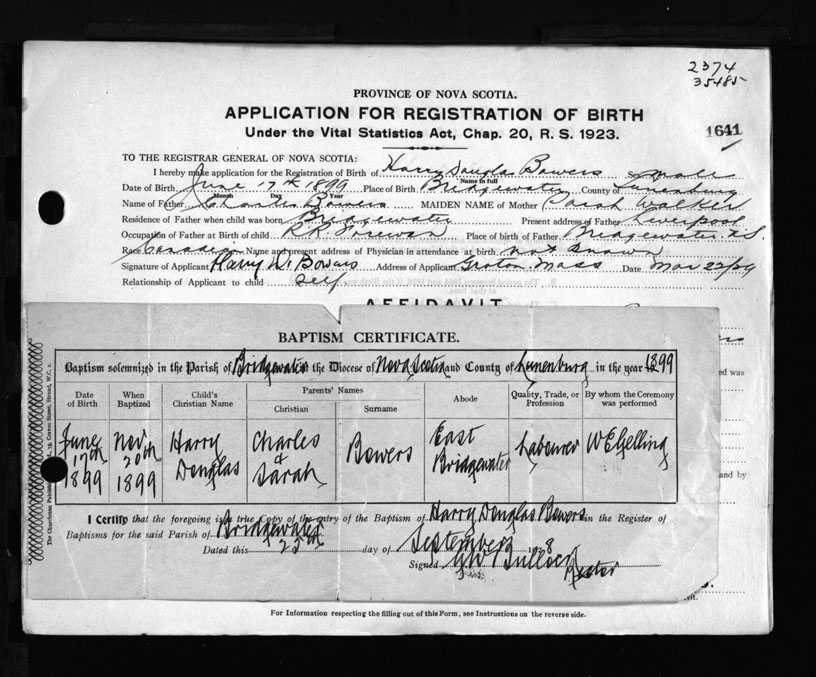 2374
35485
PROVINCE OF NOVA SCOTIA.
APPLICATION FOR REGISTRATION OF BIRTH
Under the Vital Statistics Act, Chap. 20, R. S. 1923.
1641
TO THE REGISTRAR GENERAL OF NOVA SCOTIA:
I hereby make application for the Registration of Birth of Harry Douglas Bowers Sex male
Name in full
Date of Birth June 17th 1899 Place of Birth Bridgewater County of Lunenburg
Month Day Year
Name of Father Charles Bowers MAIDEN NAME of Mother Walker
Residence of Father when child was born Bridgewater Present address of Father Liverpool
Occupation of Father at Birth of child R.R. Place of birth of Father Bridgewater N.S.
Race Canadian Name and present address of Physician in attendance at birth not known
Signature of Applicant Harry D. Bowers Address of Applicant Groton Mass Date Mar 22/29
Relationship of Applicant to child self
AFFIDAVIT
BAPTISM CERTIFICATE.
Baptism solemnized in the Parish of Bridgewater in the Diocese of Nova Scotia and County of Lunenburg in the year 1899
Date of Birth When Baptized Child's Christian Name Parents' Names Christian Surname Abode Quality, Trade, or Profession By whom the Ceremony was performed
June 17th 1899 Nov. 20th 1899 Harry Douglas Charles & Sarah Bowers East Bridgewater Labourer W E Gelling
I Certify that the foregoing is a true Copy of the entry of the Baptism of Harry Douglas Bowers in the Register of
Baptisms for the said Parish of Bridgewater
Dated this day of September 8
Signed Rector
For Information respecting the filling out of this Form, see Instructions on the reverse side.